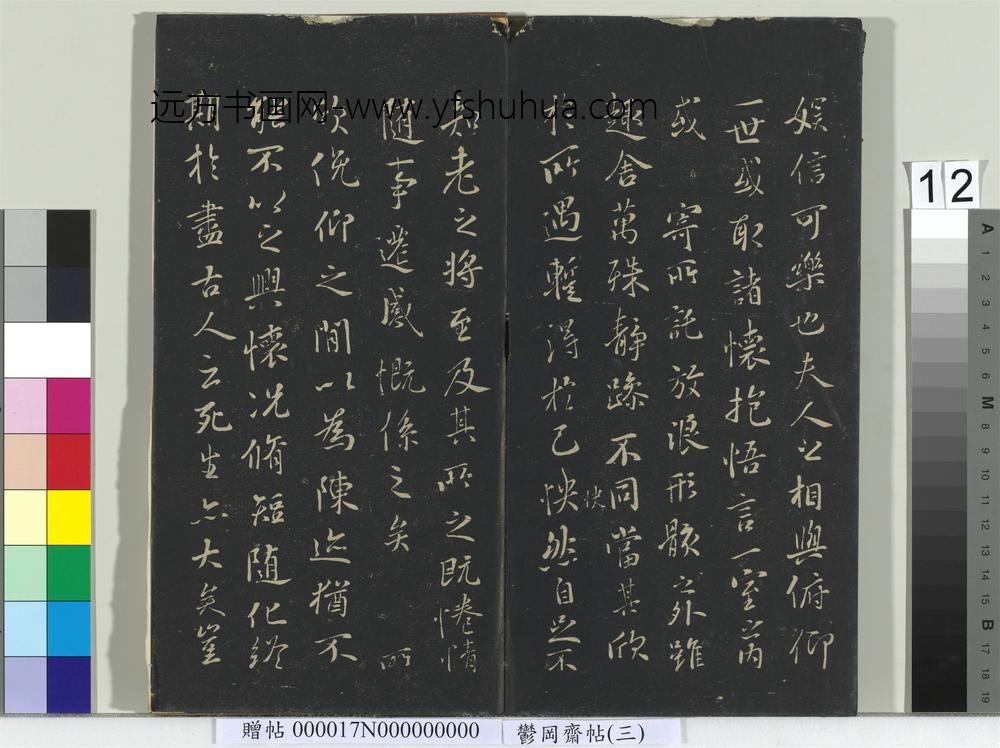 娛信可樂也夫人之相與俯仰
一世或取諸懷抱悟言一室之內
或寄所託放浪形骸之外雖
趣舍萬殊靜躁不同當其欣
快
於所遇蹔得於己怏然自足不
知老之將至及其所之既惓情
隨事遷感慨係之矣 所
欣俛仰之間以為陳迹猶不
能不以之興懷況脩短隨化終
期於盡古人云死生亦大矣豈
远方书画网-www.yfshuhua.com
12
A 1 2 3 4 5 6 M 8 9 10 11 12 13 14 15 B 17 18 19
贈帖 000017N000000000
鬱岡齋帖(三)